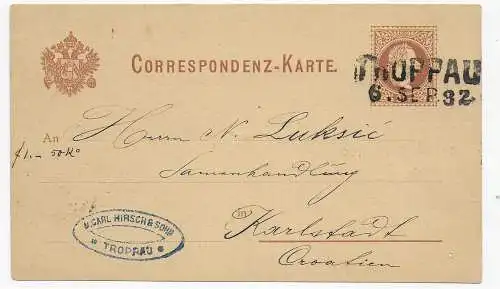 CORRESPONDENZ-KARTE.
TROPPAU
6. SEP. 82
An
Herrn N. Luksić
Samenhandlung
(in)
Karlstadt
Croatien
CARL HIRSCH & SOHN
* TROPPAU *